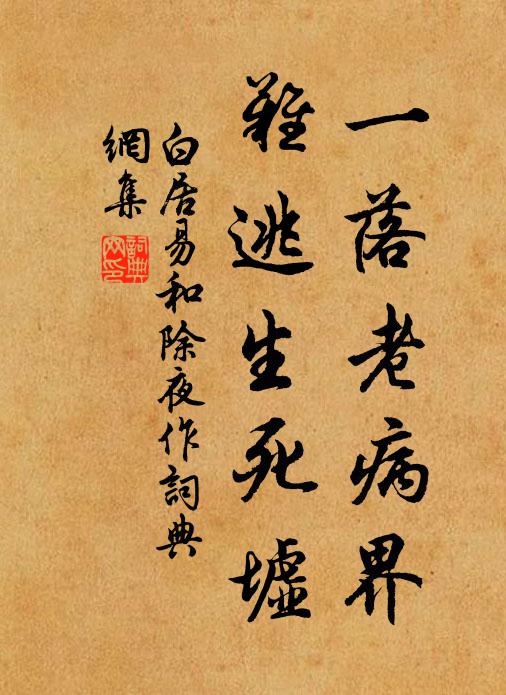 一落老病界
難逃生死墟
白居易和除夜作詞典
網集
詞典
网印